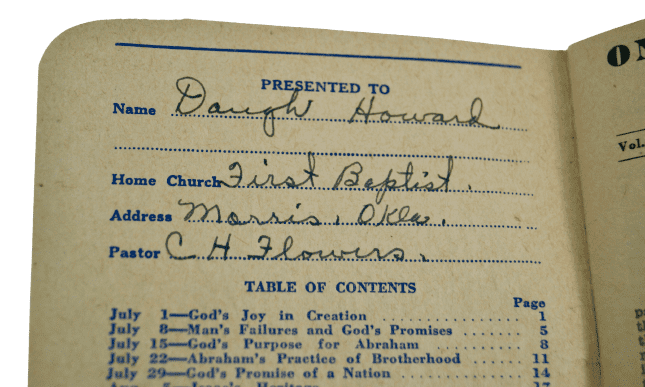 PRESENTED TO
Name Daugh Howard
Home Church First Baptist.
Address Morris, Okla.
Pastor C H Flowers.
TABLE OF CONTENTS
Page
July 1—God's Joy in Creation ........ 1
July 8—Man's Failures and God's Promises ....... 5
July 15—God's Purpose for Abraham ........ 8
July 22—Abraham's Practice of Brotherhood ........ 11
July 29—God's Promise of a Nation ........ 14
Vol.